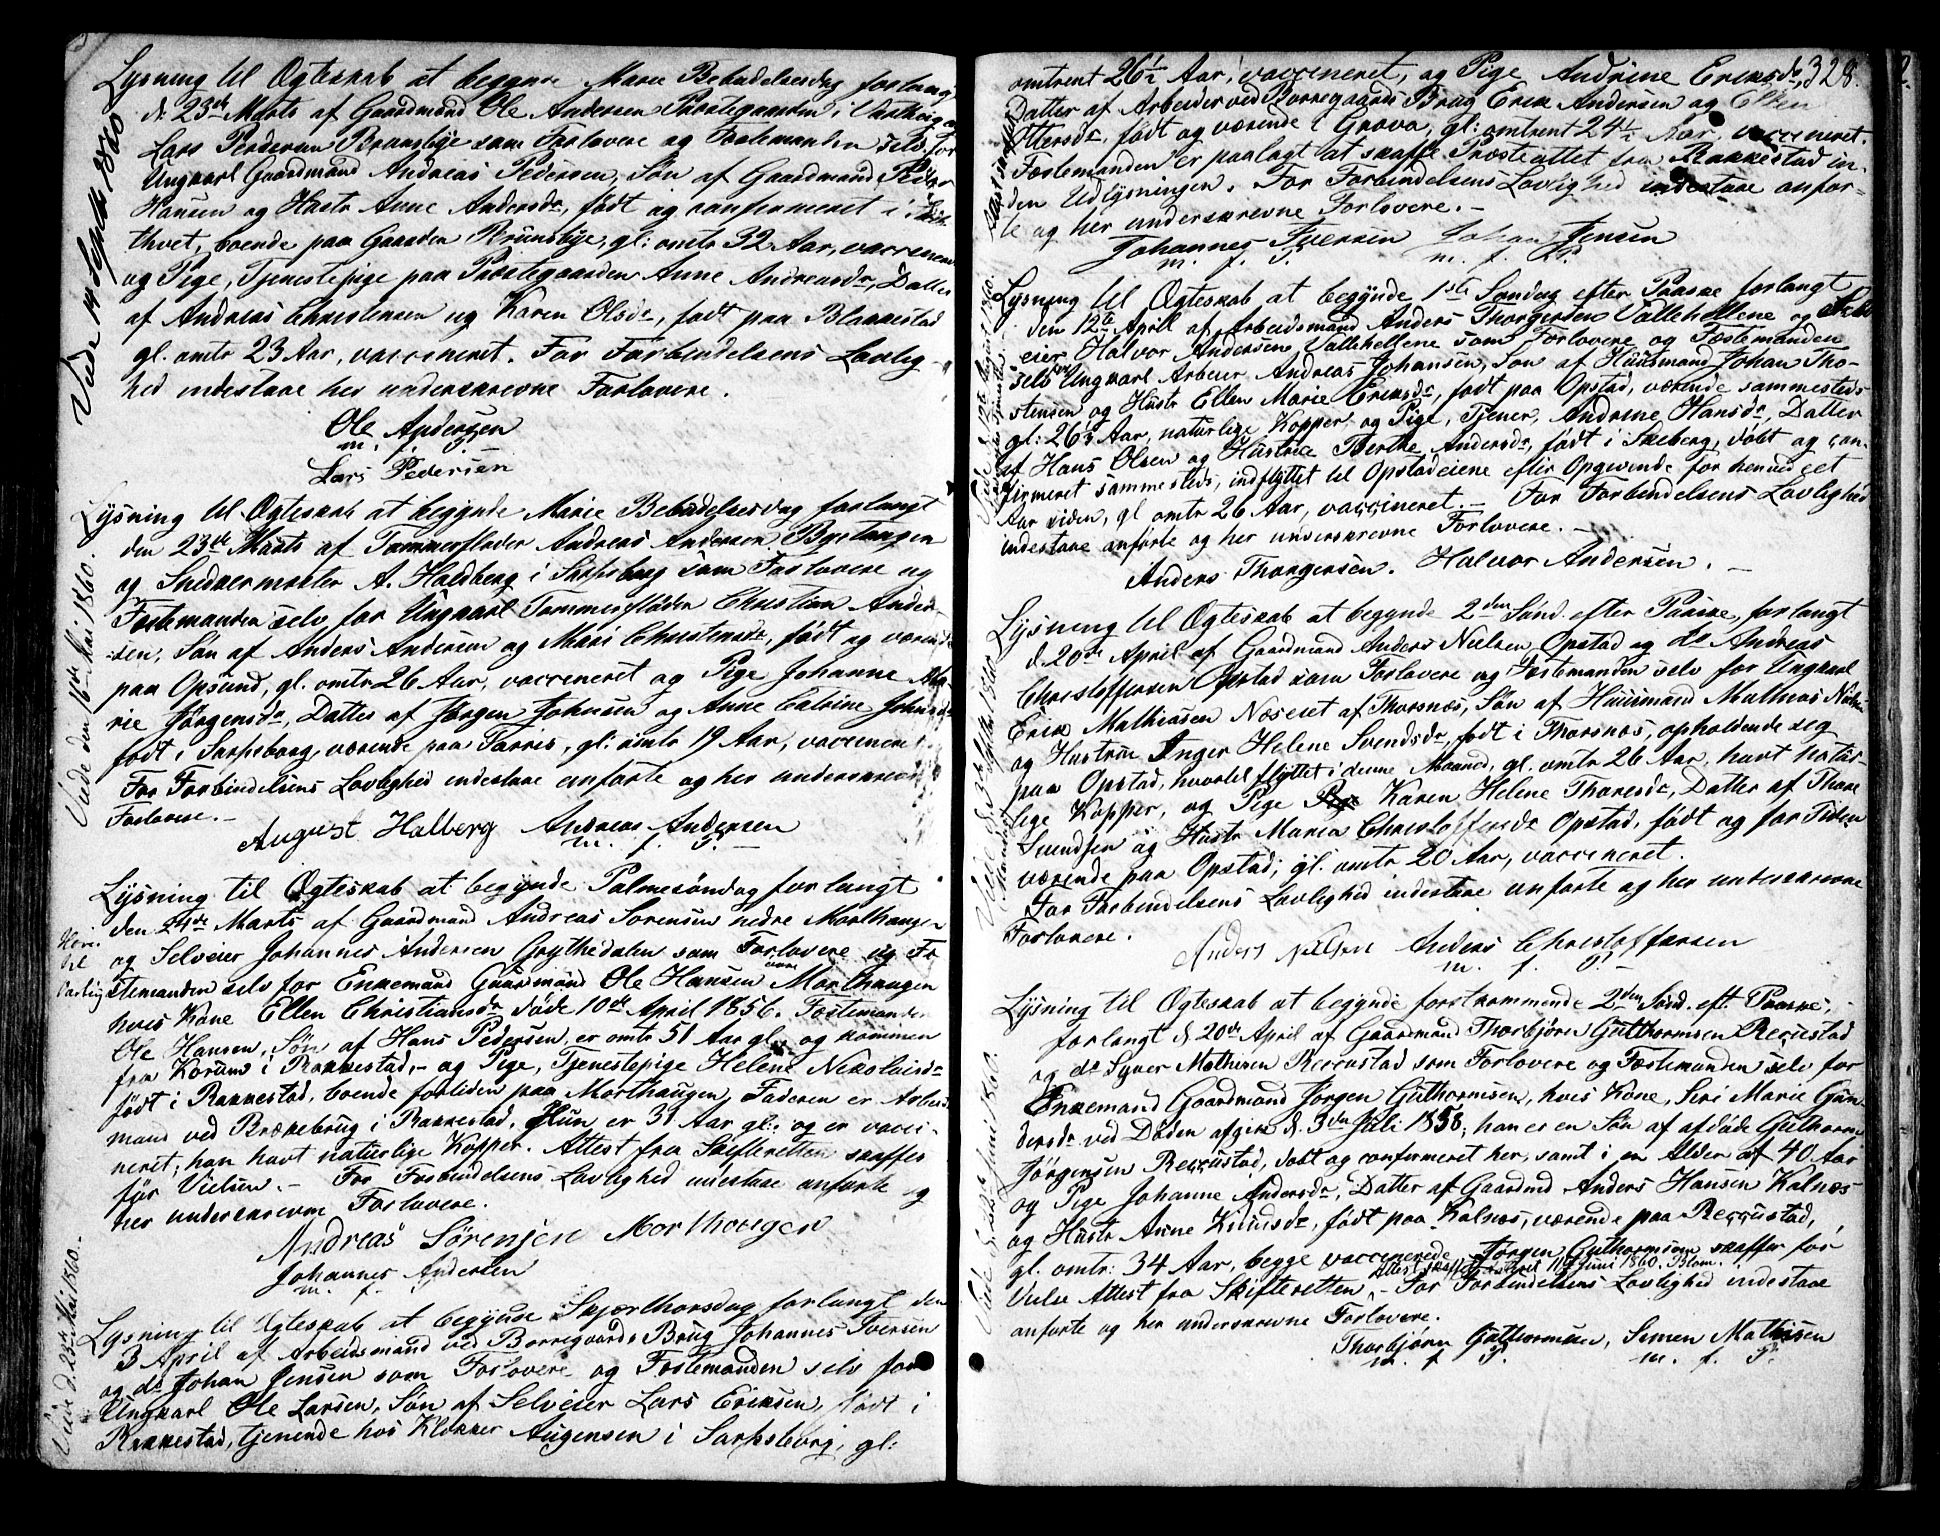 Lysning til Ægteskab at begynde Marie Bebudelsesdag forlangt
d. 23de Marts af Gaardmand Ole Andersen Præstegaarden i
Lars Pedersen Brunsbye som Forlovere og Fæstemanden selv for
Ungkarl Gaardmand Andreas Pedersen, Søn af Gaardmand Peder
Hansen og Hustr Anne Andersdr, født og confirmeret i
thvet, boende paa Gaarden Brunsbye, gl: omtr 32 Aar, vaccineret
og Pige, Tjenestepige paa Præstegaarden Anne Andreasdr, Datter
af Andreas Christensen og Karen Olsdr, født paa Blakkestad
gl. omtr 23 Aar, vaccineret. For Forbindelsens Lovlig-
hed indestaae her underskrevne Forlovere.
Ole Andersen
m. f. P.
Lars Pedersen
Viede 14 Septbr 1860
Lysning til Ægteskab at begynde Marie Bebudelsesdag forlangt
den 23de Marts af Tømmerfløder Andreas Andersen Bystangen
og Snedkermester A. Haldberg i Sarpsborg som Forlovere og
Fæstemanden selv for Ungkarl Tømmerfløder Christian Ander-
sen, Søn af Anders Andersen og Mari Christensdr, født og værende
paa Opsund, gl. omtr 26 Aar, vaccineret og Pige Johanne Ma-
rie Jørgensdr, Datter af Jørgen Johnsen og Anne Catrine Johnsdr
født i Sarpsborg, værende paa Torris, gl: omtr 19 Aar, vaccineret
For Forbindelsens Lovlighed indestaae anførte og her underskrevne
Forlovere. -
August Halberg Andreas Andersen
m. f. P.
Viede den 16de Mai 1860.
Lysning til Ægteskab at begynde Palmesøndag forlangt
den 24de Marts af Gaardmand Andreas Sørensen nedre Morthaugen
og Selveier Johannes Andersen Grythedalen som Forlovere og Fæ-
stemanden selv for Enkemand Gaardmand Ole Hansen Morthaugen
hvis Kone Ellen Christiansdr døde 10de April 1856. Fæstemanden
Ole Hansen, Søn af Hans Pedersen, er omtr 51 Aar gl. og kommen
fra Korum i Rakkestad, - og Pige, Tjenestepige Helene Nikolaisdr
født i Rakkestad, boende forliden paa Morthaugen, Faderen er Arbeids
mand ved Brækkebrug i Rakkestad, Hun er 31 Aar gl: og er vacci-
neret; han havt naturlige Kopper. Attest fra Skifteretten skaffes
før Vielsen. - For Forbindelsens Lovlighed indestaae anførte og
her underskrevne Forlovere.
Andreas Sørensen Morthougen
Johannes Andersen
m. f. P.
Lysning til Ægteskab at begynde Skjærthorsdag forlangt den
3 April af Arbeidsmand ved Borregaards Brug Johannes Iversen
og do Johan Jensen som Forlovere og Fæstemanden selv for
Ungkarl Ole Larsen, Søn af Selveier Lars Eriksen, født i
Rakkestad, tjenende hos Klokker Augensen i Sarpsborg, gl:
Viede d. 23de Mai 1860. -
328.
omtrent 26½ Aar, vaccineret, og Pige Andrine Eriksdr,
Datter af Arbeider ved Borregaards Brug Erik Andersen og Ellen
Ottersdr, født og værende i Grova, gl: omtrent 24½ Aar, vaccineret.
Fæstemanden er paalagt at skaffe Præsteattest fra Rakkestad in-
den Udlysningen. For Forbindelsens Lovlighed indestaae anfør-
te og her underskrevne Forlovere. -
Johannes Iversen Johan Jensen
m. f. P. m. f. P.
Lysning til Ægteskab at begynde 1ste Søndag efter Paaske forlangt
den 12te April af Arbeidsmand Anders Thorgersen Vallehellene og Selv
eier Halvor Andersen Vallehellene som Forlovere og Fæstemanden
selv for Ungkarl Arbeier Andreas Johansen, Søn af Huusmand Johan Tho-
stensen og Hustr Ellen Marie Eriksdr, født paa Opstad, værende sammesteds
gl: 26½ Aar, naturlige Kopper, og Pige, Tjener, Andrine Hansdr, Datter
af Hans Olsen og Hustrue Berthe Andersdr, født i Skeberg, døbt og con-
firmeret sammesteds, indflyttet til Opstadeiene efter Opgivende for henved et
Aar siden, gl omtr 26 Aar, vaccineret. - For Forbindelsens Lovlighed
indestaae anførte og her underskrevne Forlovere. -
Anders Thorgersen. Halvor Andersen. -
Lysning til Ægteskab at begynde 2den Sønd. efter Paaske, forlangt
d. 20de April af Gaardmand Anders Nielsen Opstad og do Andreas
Christoffersen Opstad som Forlovere og Fæstemanden selv for Ungkarl
Erik Mathiasen Næseret af Thorsnæs, Søn af Huusmand Mathias
og Hustrue Inger Helene Svendsdr, født i Thorsnæs, opholdende sig
paa Opstad, hvortil flyttet i denne Maaned, gl. omtr 26 Aar, havt natur-
lige Kopper, og Pige Karen Helene Thoresdr, Datter af Thore
Svendsen og Hustr Maria Christoffersdr Opstad, født og for Tiden
værende paa Opstad, gl. omtr 20 Aar, vaccineret.
For Forbindelsens Lovlighed indestaae anførte og her underskrevne
Forlovere.
Anders Nilsen Anders Christoffersen
m. f. P.
Lysning til Ægteskab at begynde førstkommende 2den Sønd. eft. Paaske,
forlangt d. 20de April af Gaardmand Thorbjørn Gutthormsen Reccustad
og do Syver Mathisen Reccustad som Forlovere og Fæstemanden selv for
Enkemand Gaardmand Jørgen Guthormsen, hvis Kone, Siri Marie Gun
dersdr ved Døden afgik d. 3die Juli 1858; han er en Søn af afdøde Guthorm
Jørgensen Reccustad, døbt og confirmeret her, samt i en Alder af 40 Aar
og Pige Johanne Andersdr, Datter af Gaardmd Anders Hansen Kalnæs
og Hustr Anne Knudsdr, født paa Kalnæs, værende paa Reccustad,
gl. omtr: 34 Aar, begge vaccinerede. Jørgen Guthormsen skaffer før
Attest skaffet 11te Juni 1860. Blom.
Vielse Attest fra Skifteretten. - For Forbindelsens Lovlighed indestaae
anførte og her underskrevne Forlovere.
Thorbjørn Guthormsen, Simen Mathisen
m. f. P. m. f. P.